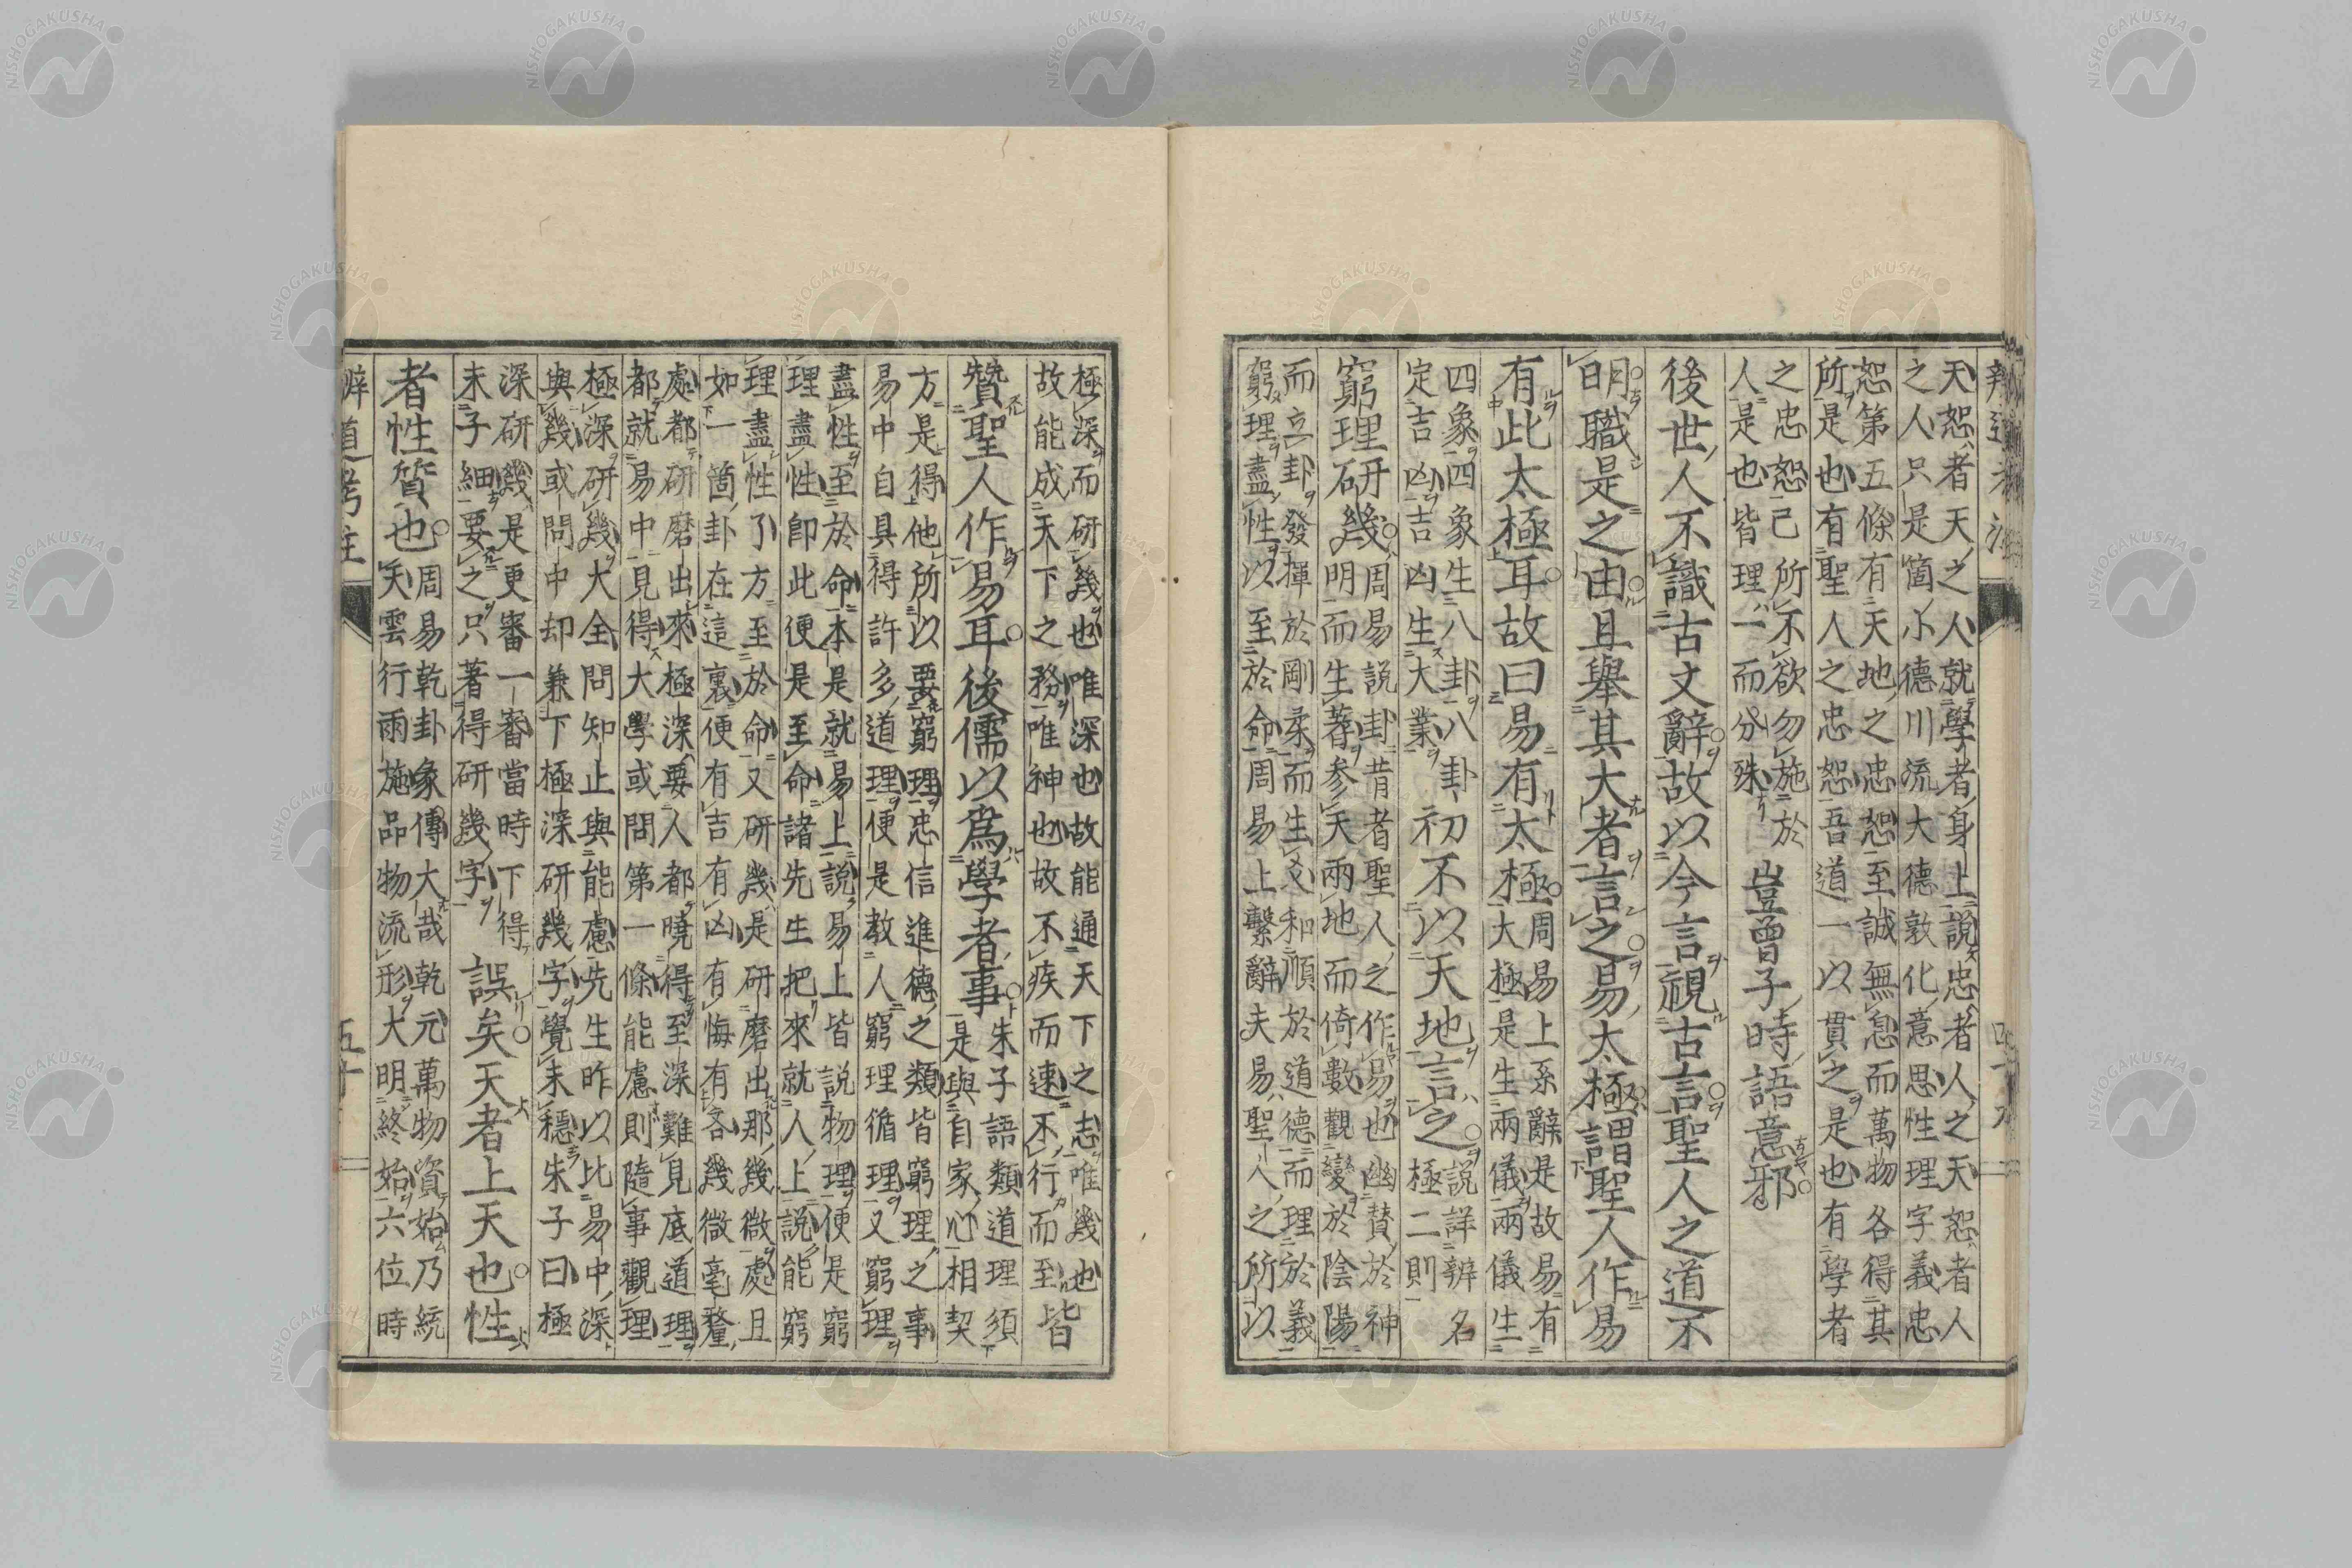 天恕者天之人就學者身上說忠者人之天恕者人
之人只是箇小德川流大德敦化意思性理字義忠
恕第五條有天地之忠恕至誠無息而萬物各得其
所是也有聖人之忠恕吾道一以貫之是也有學者
之忠恕己所不欲勿施於
人是也皆理一而分殊
豈曾子時語意邪
後世人不識古文辭故以今言視古言聖人之道不
明職是之由且舉其大者言之易太極謂聖人作易
有此太極耳故曰易有太極
周易上系辭是故易有
大極是生兩儀兩儀生
四象四象生八卦八卦
定吉凶吉凶生大業
初不以天地言之
說詳辨名
極二則
窮理研幾
周易說卦昔者聖人之作易也幽贊於神
明而生蓍參天兩地而倚數觀變於陰陽
而立卦發揮於剛柔而生爻和順於道德而理於義
窮理盡性以至於命周易上繫辭夫易聖人之所以
極深而研幾也唯深也故能通天下之志唯幾也
故能成天下之務唯神也故不疾而速不行而至
皆
贊聖人作易耳後儒以爲學者事
朱子語類道理須
是與自家心相契
方是得他所以要窮理忠信進德之類皆窮理之事
易中自具得許多道理便是教人窮理循理又窮理
盡性至於命本是就易上說易上皆說物理便是窮
理盡性卽此便是至命諸先生把來就人上說能窮
理盡性了方至於命又研幾是研磨出那幾微處且
如一箇卦在這裏便有吉有凶有悔有吝幾微毫釐
處都研磨出來極深要人都曉得至深難見底道理
都就易中見得大學或問第一條能慮則隨事觀理
極深研幾大全問知止與能慮先生昨以比易中深
與幾或問中却兼下極深研幾字覺未穩朱子曰極
深研幾是更審一審當時下得
未子細要之只著得研幾字
誤矣天者上天也性
者性質也
周易乾卦彖傳大哉乾元萬物資始乃統
天雲行雨施品物流形大明終始六位時
辨道考註
五十